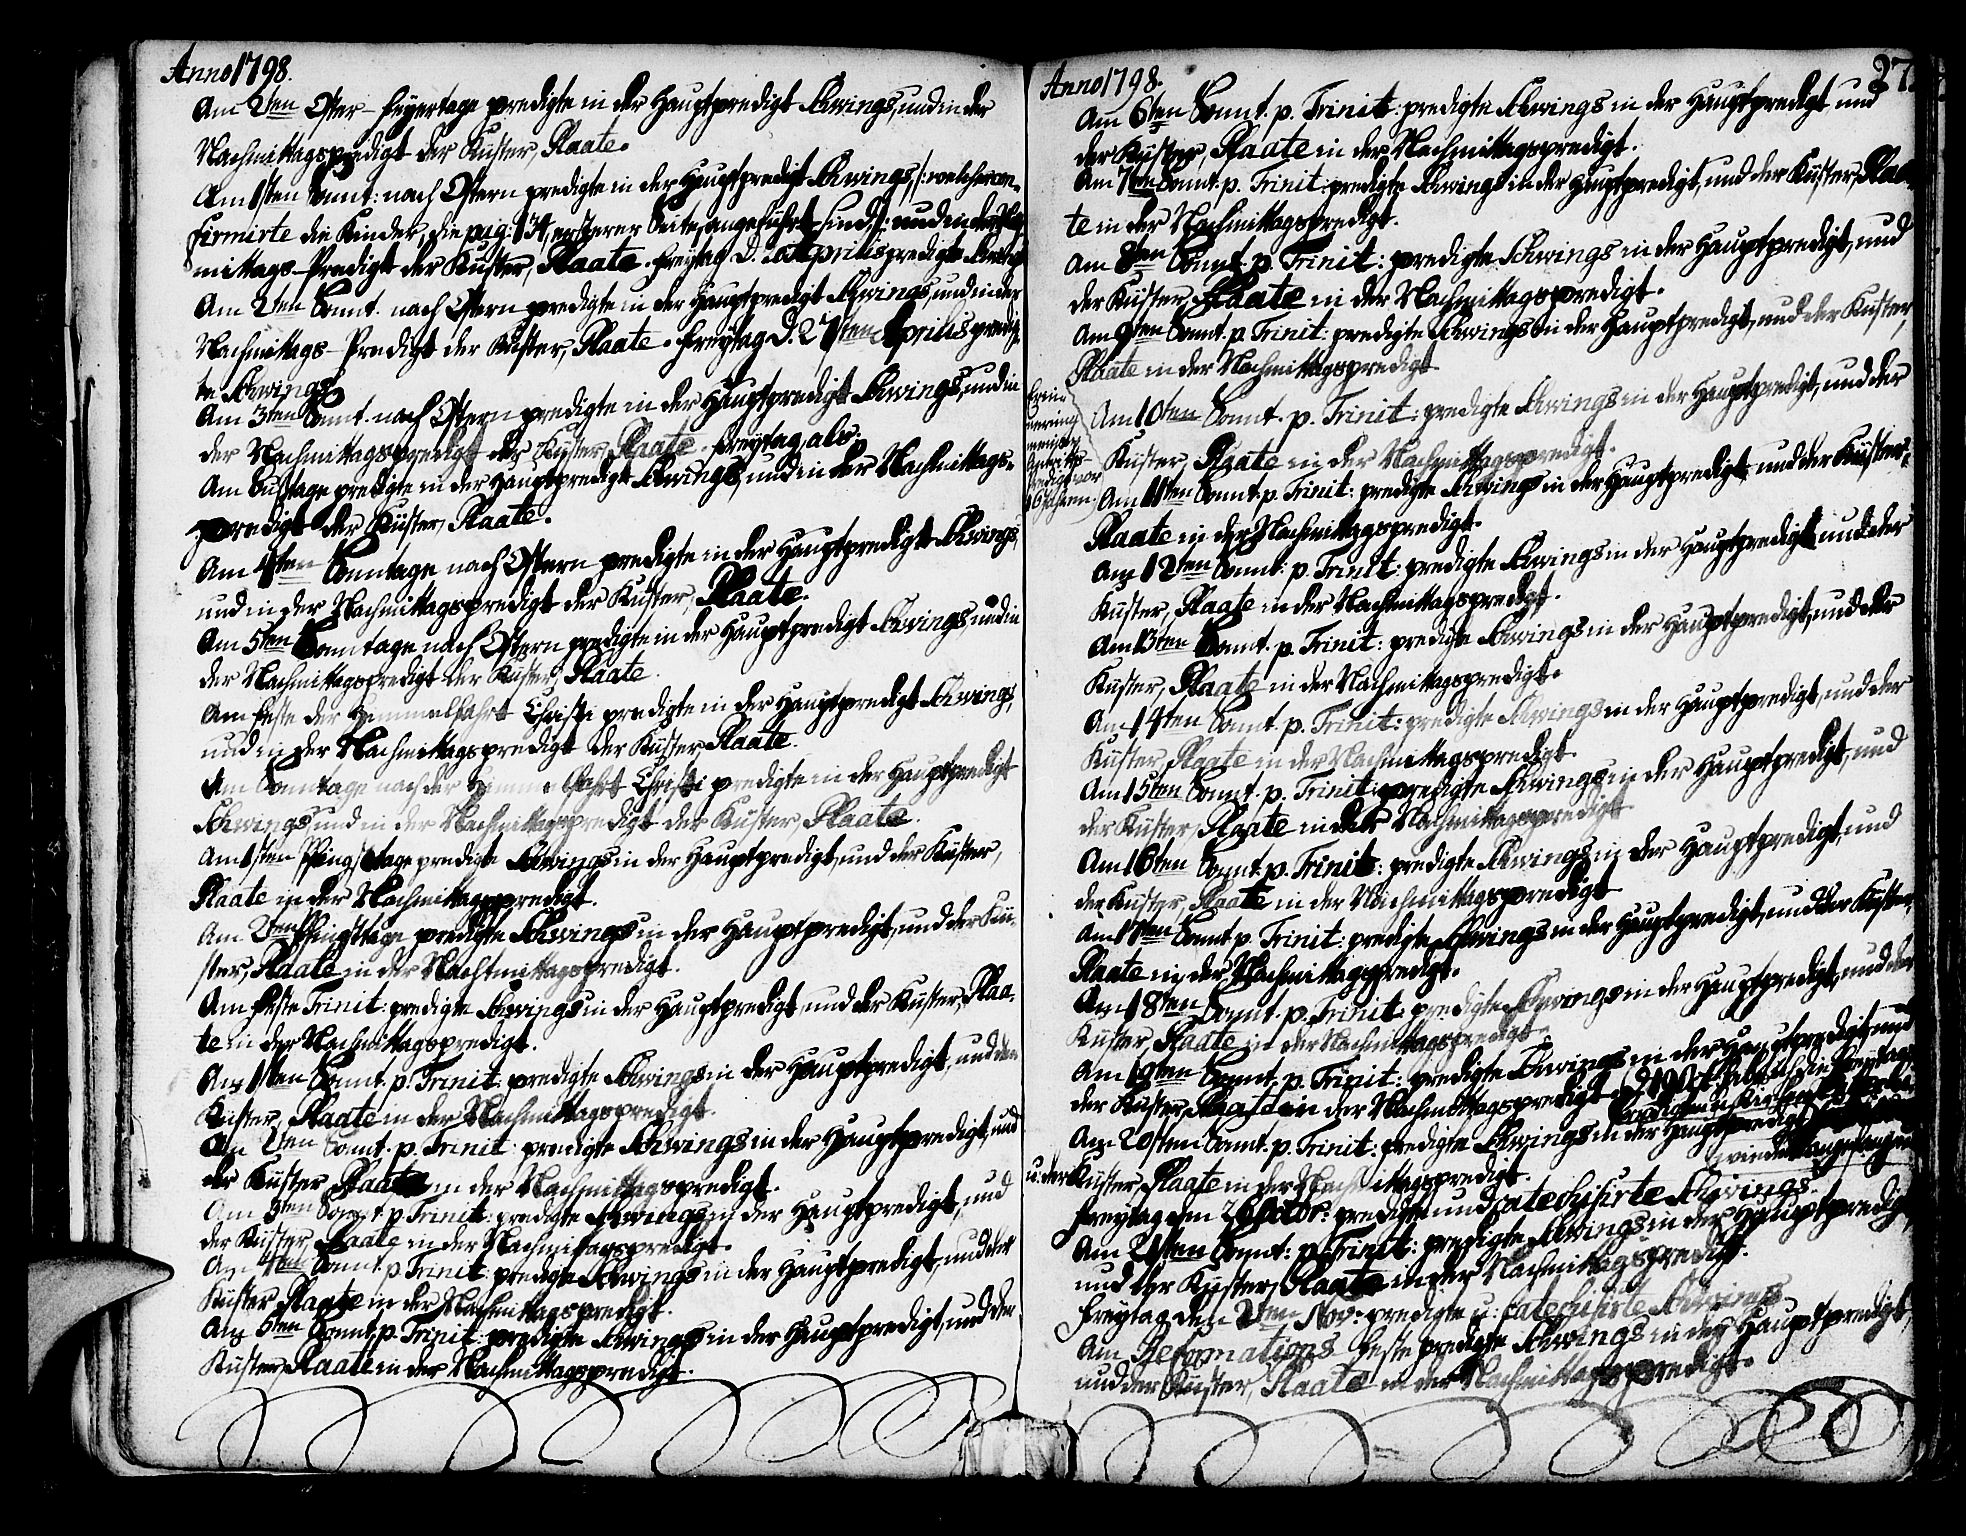 Anno 1798.
Am 2ten Oster-Feyertage predigte in der Hauptpredigt Schwings, und in der
Nachmittagspredigt der Küster, Plaate.
Am 1sten Sonnt: nach Ostern predigte in der Hauptpredigt Schwings, /: welcher con-
firmirte die Kinder, die pag: 134, ersterer Seite, angeführt sind :/ und in der Nach-
mittags-Predigt der Küster, Plaate. Freytag d. Aprilis predigte Schwings
Am 2ten Sonnt. nach Ostern predigte in der Hauptpredigt Schwings, und in der
Nachmittags-Predigt der Küster, Plaate. Freytag d. 27ten Aprilis predig-
te Schwings
Am 3ten Sonnt. nach Ostern predigte in der Hauptpredigt Schwings, und in
der Nachmittagspredigt der Küster, Plaate. Freytag
Am Bußtage predigte in der Hauptpredigt Schwings, und in der Nachmittags-
predigt der Küster, Plaate.
Am 4ten Sonntage nach Ostern predigte in der Hauptpredigt Schwings,
und in der Nachmittagspredigt der Küster, Plaate.
Am 5ten Sonntage nach Ostern predigte in der Hauptpredigt Schwings, und in
der Nachmittagspredigt der Küster, Plaate.
Am Feste der Himmelfahrt Christi predigte in der Hauptpredigt Schwings,
und in der Nachmittagspredigt der Küster Plaate.
Am Sonntage nach der Himmelfahrt Christi predigte in der Hauptpredigt
Schwings, und in der Nachmittagspredigt der Küster, Plaate.
Am 1sten Pfingsttage predigte Schwings in der Hauptpredigt, und der Küster,
Plaate in der Nachmittagspredigt.
Am 2ten Pfingsttage predigte Schwings in der Hauptpredigt, und der Kü-
ster, Plaate in der Nachmittagspredigt.
Am Feste Trinit: predigte Schwings in der Hauptpredigt, und der Küster, Plaa-
te in der Nachmittagspredigt.
Am 1sten Sonnt. p. Trinit: predigte Schwings in der Hauptpredigt, und der
Küster, Plaate in der Nachmittagspredigt.
Am 2ten Sonnt. p. Trinit: predigte Schwings in der Hauptpredigt, und
der Küster Plaate in der Nachmittagspredigt.
Am 3ten Sonnt p. Trinit: predigte Schwings in der Hauptpredigt, und
der Küster, Plaate in der Nachmittagspredigt.
Am 4ten Sonnt p. Trinit: predigte Schwings in der Hauptpredigt, und der
Küster Plaate in der Nachmittagspredigt.
Am 5ten Sonnt. p. Trinit: predigte Schwings in der Hauptpredigt, und der
Küster, Plaate in der Nachmittagspredigt.
Anno 1798. 27
Am 6ten Sonnt. p. Trinit: predigte Schwings in der Hauptpredigt, und
der Küster, Plaate in der Nachmittagspredigt.
Am 7ten Sonnt. p. Trinit: predigte Schwings in der Hauptpredigt, und der Küster, Plaa-
te in der Nachmittagspredigt.
Am 8ten Sonnt. p. Trinit: predigte Schwings in der Hauptpredigt, und
der Küster, Plaate in der Nachmittagspredigt.
Am 9ten Sonnt. p. Trinit: predigte Schwings in der Hauptpredigt, und der Küster,
Plaate in der Nachmittagspredigt
Erin-
nerung
meiner
Antritts-
predigt vor
16 Jahren.
Am 10ten Sonnt. p. Trinit: predigte Schwings in der Hauptpredigt, und der
Küster, Plaate in der Nachmittagspredigt.
Am 11ten Sonnt. p. Trinit: predigte Schwings in der Hauptpredigt und der Küster,
Plaate in der Nachmittagspredigt.
Am 12ten Sonnt: p. Trinit: predigte Schwings in der Hauptpredigt und der
Küster, Plaate in der Nachmittagspredigt.
Am 13ten Sonnt. p. Trinit: predigte Schwings in der Hauptpredigt, und der
Küster, Plaate in der Nachmittagspredigt.
Am 14ten Sonnt. p. Trinit: predigte Schwings in der Hauptpredigt, und der
Küster, Plaate in der Nachmittagspredigt
Am 15ten Sonnt. p. Trinit: predigte Schwings in der Hauptpredigt, und
der Küster, Plaate in der Nachmittagspredigt
Am 16ten Sonnt. p. Trinit: predigte Schwings in der Hauptpredigt, und
der Küster, Plaate in der Nachmittagspredigt
Am 17ten Sonnt p. Trinit: predigte Schwings in der Hauptpredigt, und der Küster,
Plaate in der Nachmittagspredigt.
Am 18ten Sonnt. p. Trinit: predigte Schwings in der Hauptpredigt, und der
Küster, Plaate in der Nachmittagspredigt.
Am 19ten Sonnt. p. Trinit: predigte Schwings in der Hauptpredigt, und
der Küster, Plaate in der Nachmittagspredigt. die Freytags
Predigten
Am 20sten Sonnt. p. Trinit: predigte Schwings in der Hauptpredigt
wieder angefangen
u. der Küster, Plaate in der Nachmittagspredigt.
Freytag den 26 Octobr: predigte und catechisirte Schwings.
Am 21sten Sonnt: p. Trinit: predigte Schwings in der Hauptpredigt,
und der Küster, Plaate in der Nachmittagspredigt.
Freytag den 2ten Nov: predigte u: catechisirte Schwings
Am Reformations Feste predigte Schwings in der Hauptpredigt,
und der Küster, Plaate in der Nachmittagspredigt.